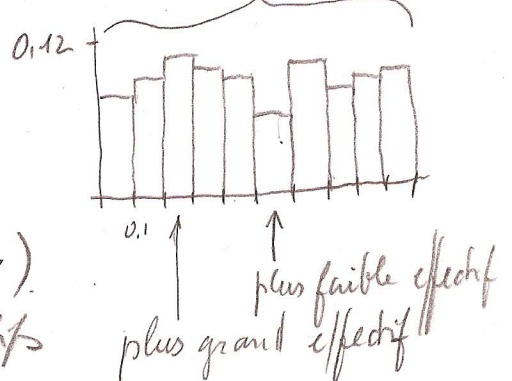 0,12
0,1
).
plus faible effectif
plus grand effectif